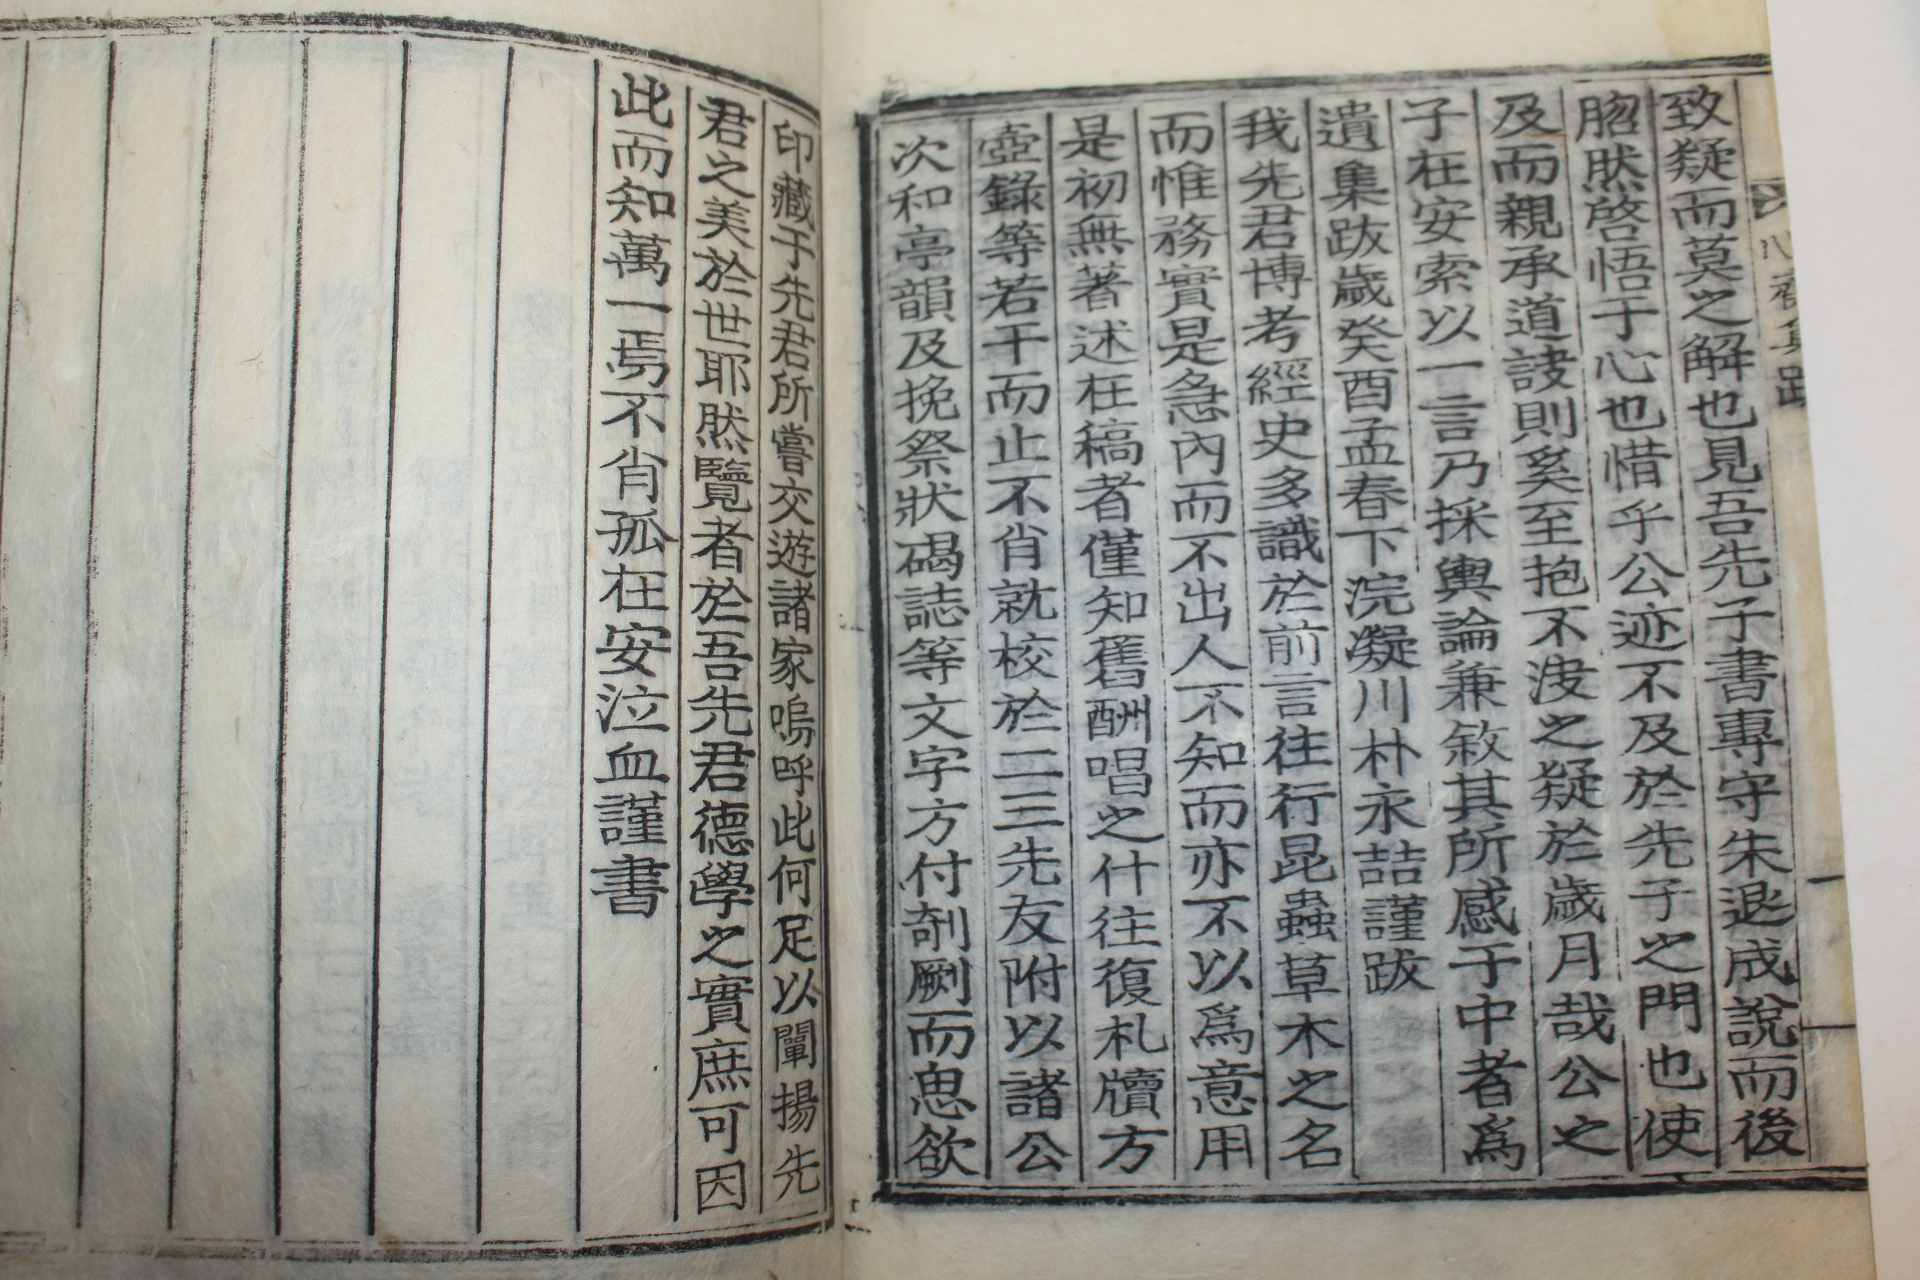 致疑而莫之解也見吾先子書專守朱退成說而後
脗然啓悟于心也惜乎公迹不及於先子之門也使
及而親承道詖則奚至抱不洩之疑於歲月哉公之
子在安索以一言乃採輿論兼敘其所感于中者爲
遺集跋歲癸酉孟春下浣凝川朴永喆謹跋
我先君博考經史多識於前言往行昆蟲草木之名
而惟務實是急內而不出人不知而亦不以爲意用
是初無著述在稿者僅知舊酬唱之什往復札牘方
壺錄等若干而止不肖就校於二三先友附以諸公
次和亭韻及挽祭狀碣誌等文字方付剞劂而思欲
印藏于先君所嘗交遊諸家嗚呼此何足以闡揚先
君之美於世耶然覽者於吾先君德學之實庶可因
此而知萬一焉不肖孤在安泣血謹書
心齋集跋